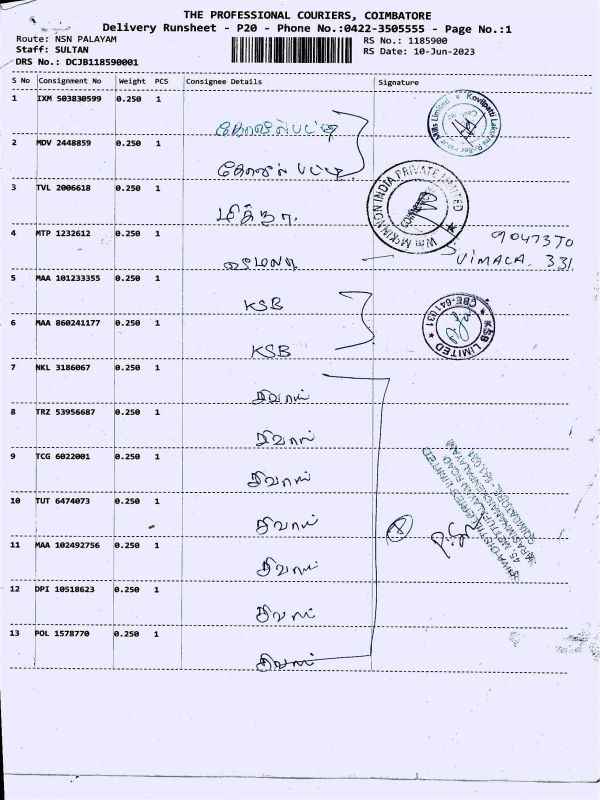 THE PROFESSIONAL COURIERS, COIMBATORE
Delivery Runsheet - P20 - Phone No.:0422-3505555 - Page No.:1
Route: NSN PALAYAM RS No.: 1185900
Staff: SULTAN RS Date: 10-Jun-2023
DRS No.: DCJB118590001
S No Consignment No Weight PCS Consignee Details Signature
1 IXM 503830599 0.250 1
கோவில்பட்டி
Kovilpatti Lakshmi Roller Flour Mills Limited
2 MDV 2448859 0.250 1
கோவில்பட்டி
3 TVL 2006618 0.250 1
மித்ரா.
Wm MCKINNON INDIA PRIVATE LIMITED
4 MTP 1232612 0.250 1
விமலா
VIMALA. 331
5 MAA 101233355 0.250 1
KSB
6 MAA 860241177 0.250 1
KSB
KSB LIMITED CBE-641 031
7 NKL 3186067 0.250 1
சிவாஸ்
8 TRZ 53956687 0.250 1
சிவாஸ்
9 TCG 6022001 0.250 1
சிவாஸ்
10 TUT 6474073 0.250 1
சிவாஸ்
8
11 MAA 102492756 0.250 1
சிவாஸ்
12 DPI 10518623 0.250 1
சிவாஸ்
13 POL 1578770 0.250 1
சிவாஸ்